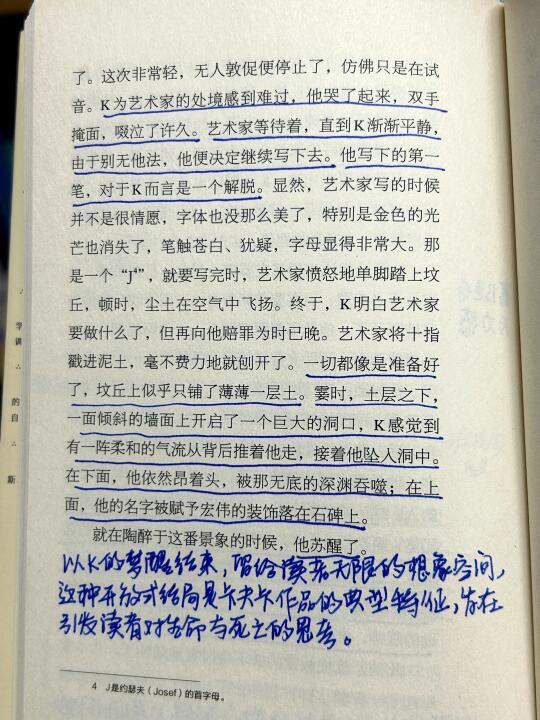 了。这次非常轻，无人敦促便停止了，仿佛只是在试
音。K为艺术家的处境感到难过，他哭了起来，双手
掩面，啜泣了许久。艺术家等待着，直到K渐渐平静，
由于别无他法，他便决定继续写下去。他写下的第一
笔，对于K而言是一个解脱。显然，艺术家写的时候
并不是很情愿，字体也没那么美了，特别是金色的光
芒也消失了，笔触苍白、犹疑，字母显得非常大。那
是一个“J⁴”，就要写完时，艺术家愤怒地单脚踏上坟
丘，顿时，尘土在空气中飞扬。终于，K明白艺术家
要做什么了，但再向他赔罪为时已晚。艺术家将十指
戳进泥土，毫不费力地就刨开了。一切都像是准备好
了，坟丘上似乎只铺了薄薄一层土。霎时，土层之下，
一面倾斜的墙面上开启了一个巨大的洞口，K感觉到
有一阵柔和的气流从背后推着他走，接着他坠入洞中。
在下面，他依然昂着头，被那无底的深渊吞噬；在上
面，他的名字被赋予宏伟的装饰落在石碑上。
就在陶醉于这番景象的时候，他苏醒了。
以K的梦醒结束，留给读者无限的想象空间，
这种开放式结局是卡夫卡作品的典型特征，旨在
引发读者对生命与死亡的思考。
4 J是约瑟夫（Josef）的首字母。